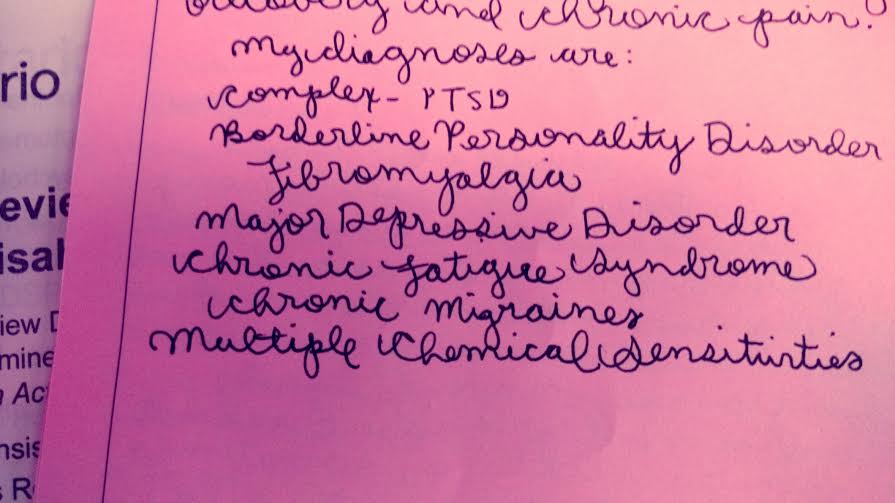 rio
evie
isal
iew D
mine
Ac
nsis
s R
and chronic pain?
My diagnoses are:
Complex-PTSD
Borderline Personality Disorder
Fibromyalgia
Major Depressive Disorder
Chronic Fatigue Syndrome
Chronic Migraines
Multiple Chemical Sensitivities